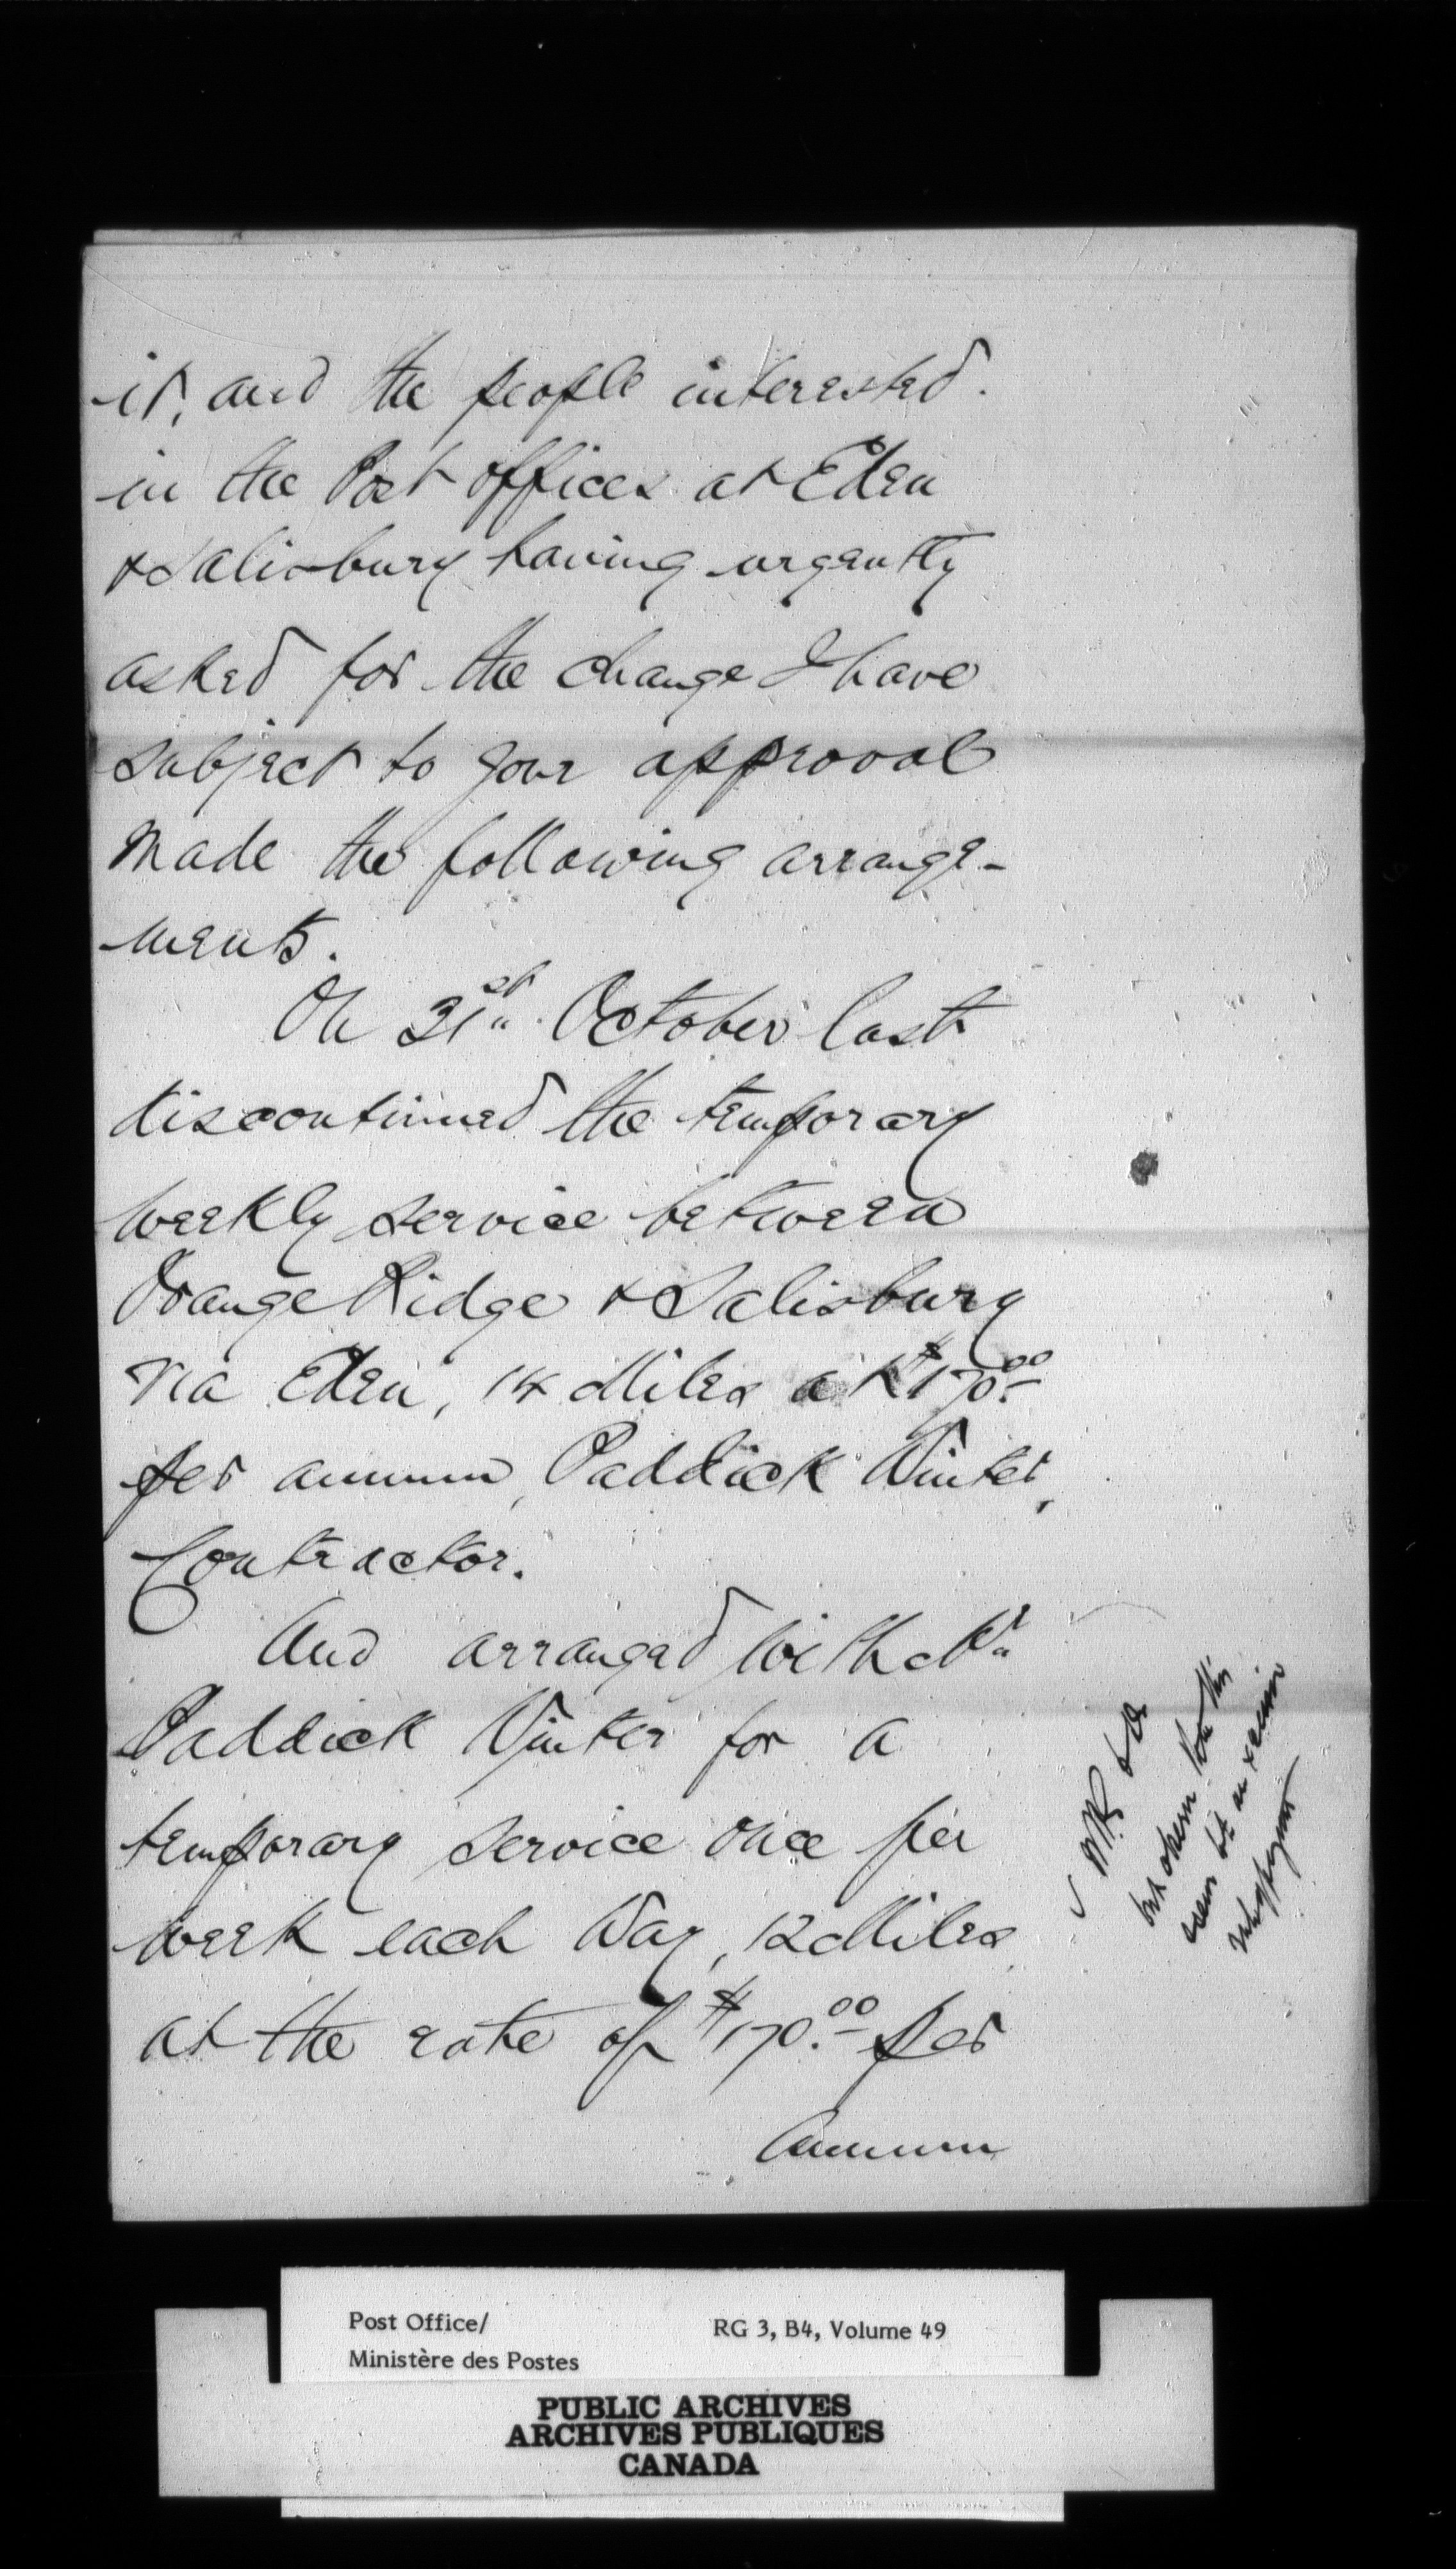 it, and the people interested.
in the Post offices at Eden
& Salisbury having urgently
asked for the change I have
subject to your approval
made the following arrange-
ments.
On 31st October last
discontinued the temporary
weekly service between
Orange Ridge & Salisbury
via Eden, 14 Miles at $170.00
per annum, Paddick Vinter,
Contractor.
And arranged with Mr
Paddick Vinter for a
temporary service once per
week each way, 12 Miles
at the rate of $170.00 per
Annum
but
seem
Post Office/
Ministère des Postes
RG 3, B4, Volume 49
PUBLIC ARCHIVES
ARCHIVES PUBLIQUES
CANADA